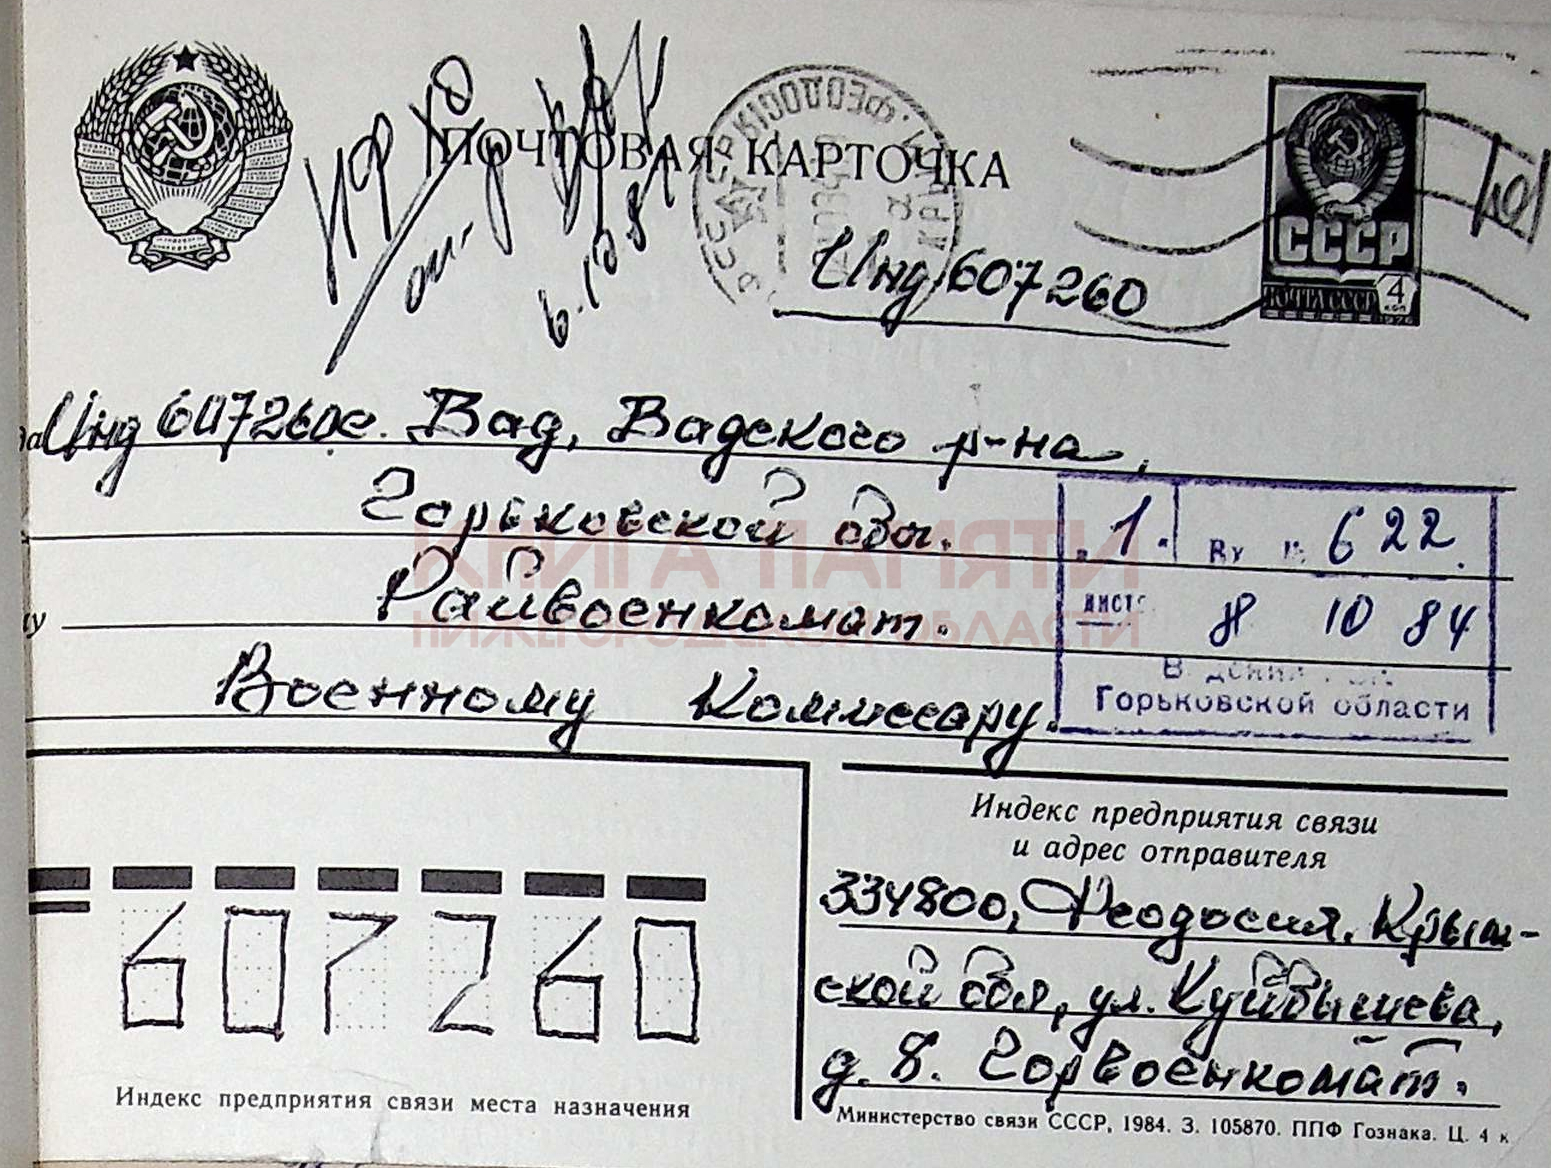 ПОЧТОВАЯ КАРТОЧКА
6.10.84
СССР
4
КОП
Инд 607260
Инд 607260 с. Вад, Вадского р-на,
Горьковской обл.
Райвоенкомат.
Военному Комиссару.
1. Вх № 622.
ЛИСТ
8 10 84
Горьковской области
КНИГА ПАМЯТИ
НИЖЕГОРОДСКОЙ ОБЛАСТИ
607260
Индекс предприятия связи места назначения
Индекс предприятия связи
и адрес отправителя
334800, Феодосия, Крым-
ской обл, ул. Куйбышева,
д. 8. Горвоенкомат.
Министерство связи СССР, 1984. З. 105870. ППФ Гознака. Ц. 4 к